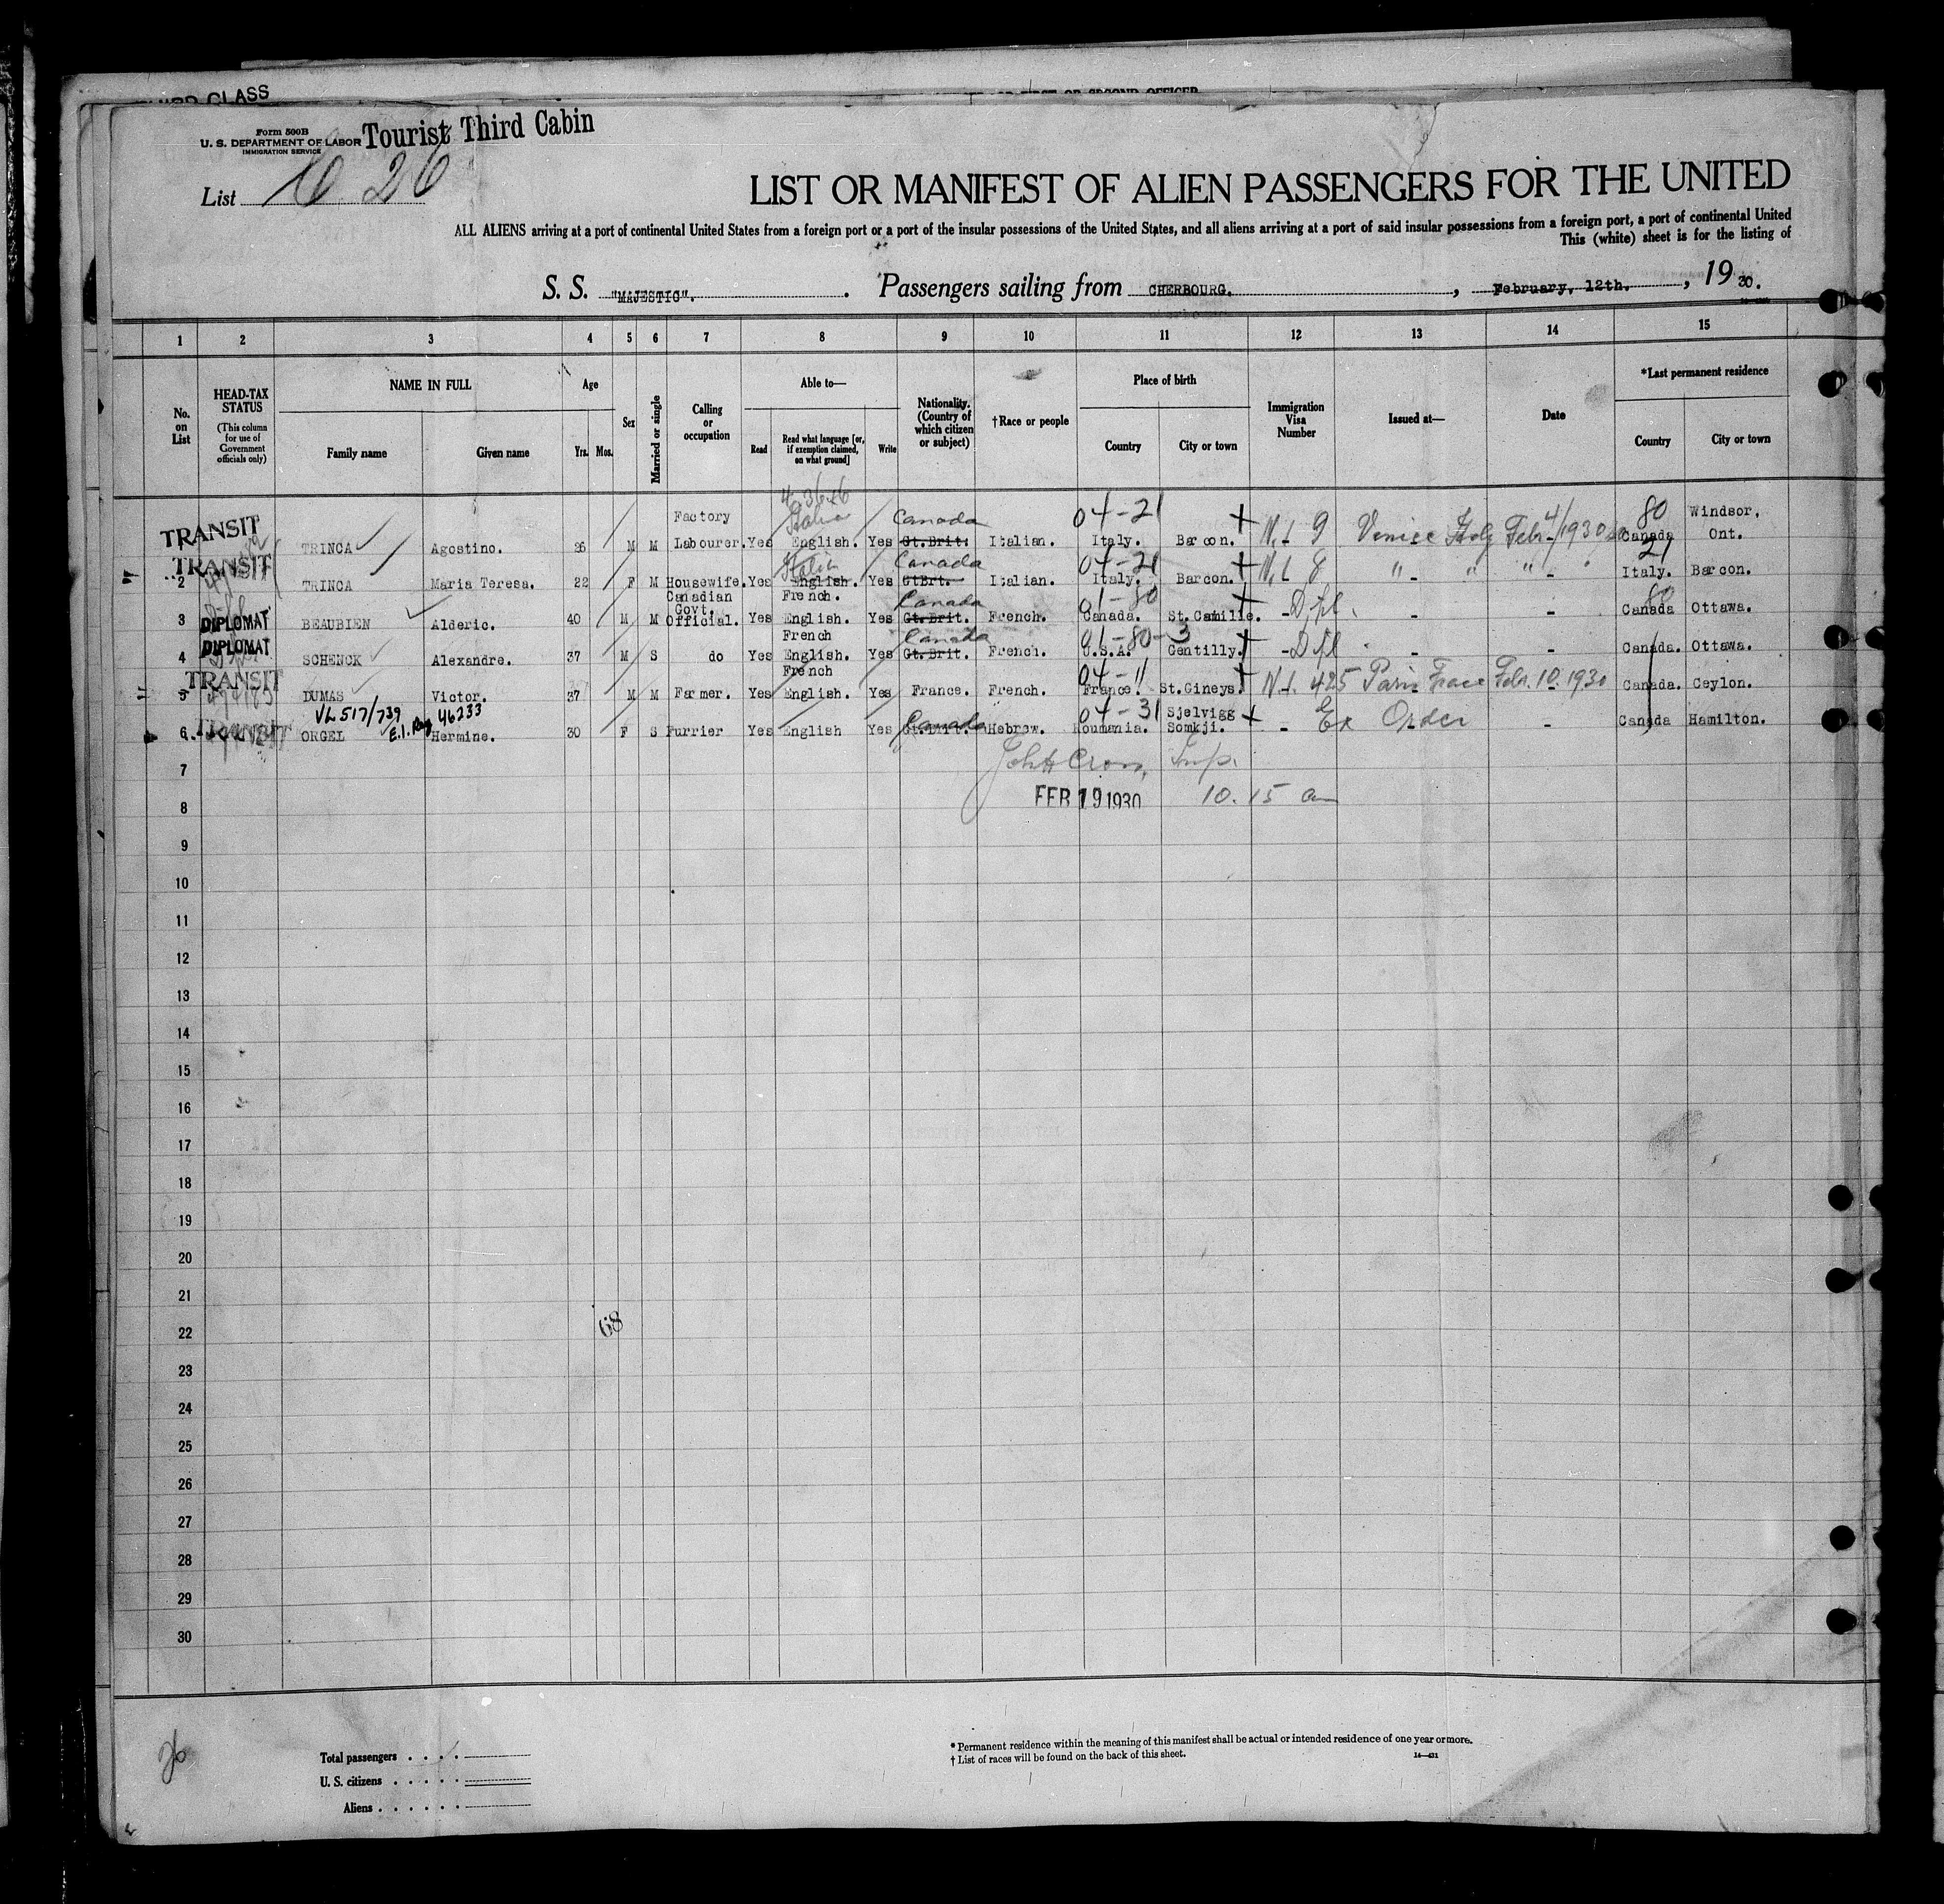 THIRD CLASS
Form 500B
U. S. DEPARTMENT OF LABOR
IMMIGRATION SERVICE
Tourist Third Cabin
List 26
LIST OR MANIFEST OF ALIEN PASSENGERS FOR THE UNITED
ALL ALIENS arriving at a port of continental United States from a foreign port or a port of the insular possessions of the United States, and all aliens arriving at a port of said insular possessions from a foreign port, a port of continental United
This (white) sheet is for the listing of
S. S. "MAJESTIC". Passengers sailing from CHERBOURG. , February, 12th. , 1930.
1 2 3 4 5 6 7 8 9 10 11 12 13 14 15
No. on List
HEAD-TAX STATUS
(This column for use of Government officials only)
NAME IN FULL
Family name Given name
Age
Yrs. Mos.
Sex
Married or single
Calling or occupation
Able to—
Read
Read what language [or, if exemption claimed, on what ground]
Write
Nationality. (Country of which citizen or subject)
†Race or people
Place of birth
Country City or town
Immigration Visa Number
Issued at—
Date
*Last permanent residence
Country City or town
TRANSIT Factory Canada 04-21 80 Windsor,
TRINCA Agostino. 26 M M Labourer. Yes English. Yes Gt.Brit. Italian. Italy. Barcon. N.L 9 Venice Italy Feb 4/1930 Canada Ont.
TRANSIT Canada 04-21 21
2 TRINCA Maria Teresa. 22 F M Housewife. Yes English. Yes GtBrt. Italian. Italy. Barcon. N.L 8 " " " Italy. Barcon.
Canadian Govt. French. Canada 01-80 80
3 DIPLOMAT BEAUBIEN Alderic. 40 M M Official. Yes English. Yes Gt.Brit. French. Canada. St.Camille. -Dipl. - - Canada Ottawa.
DIPLOMAT French Canada 01-80-3
4 SCHENCK Alexandre. 37 M S do Yes English. Yes Gt.Brit. French. U.S.A. Gentilly. -Dipl - - Canada. Ottawa.
TRANSIT French 04-11
5 DUMAS Victor. 37 M M Farmer. Yes English. Yes France. French. France. St.Gineys. N.L. 425 Paris France Feb. 10. 1930 Canada. Ceylon.
VL 517/739 E.I. Reg 46233 Canada 04-31 Sjelvigg
6 TRANSIT ORGEL Hermine. 30 F S Furrier Yes English Yes Gt.Brit. Hebrew. Roumania. Somkji. - Ex Order - Canada Hamilton.
7 Insp.
8 FEB 19 1930 10.15 am
9
10
11
12
13
14
15
16
17
18
19
20
21
22
68
23
24
25
26
27
28
29
30
26
Total passengers
U. S. citizens
Aliens
* Permanent residence within the meaning of this manifest shall be actual or intended residence of one year or more.
† List of races will be found on the back of this sheet.
14—431